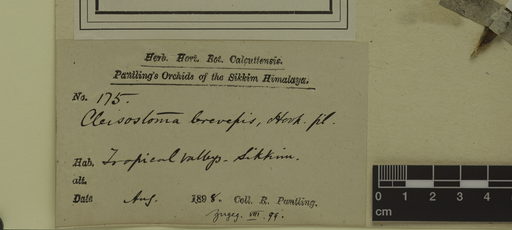 Herb. Hort. Bot. Calcuttensis.
Pantling's Orchids of the Sikkim Himalaya.
No. 175.
Cleisostoma brevipes, Hook. fil.
Hab. Tropical valleys. Sikkim.
alt.
Date Aug. 1898. Coll. R. Pantling.
VIII. 98.
0 1 2 3 4
cm